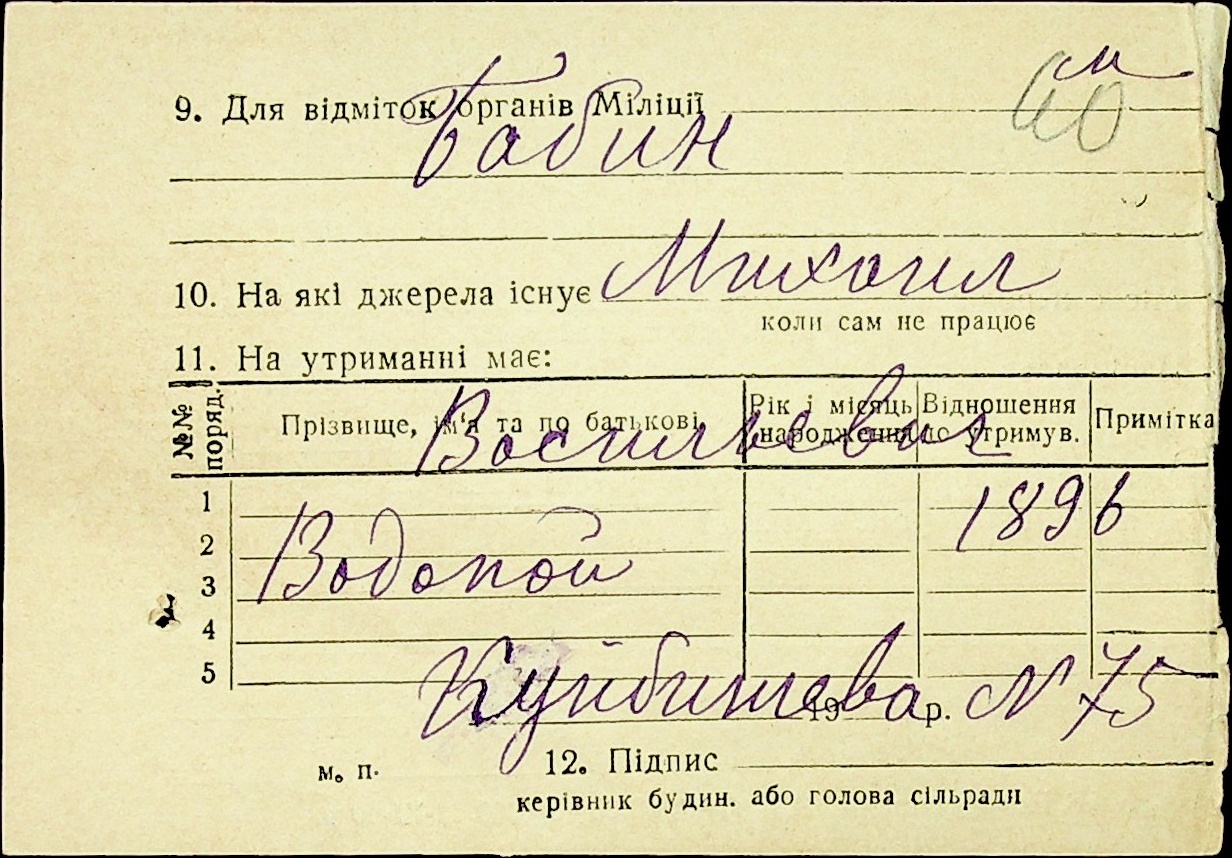 м
40
9. Для відміток органів Міліції
Бабин
10. На які джерела існує
Михаил
коли сам не працює
11. На утриманні має:
№№ поряд.
Прізвище, ім'я та по батькові
Рік і місяць народження
Відношення до утримув.
Примітка
Васильевич
1
1896
2
Водопой
3
4
5
Куйбишева № 75
19 р.
м. п.
12. Підпис
керівник будин. або голова сільради